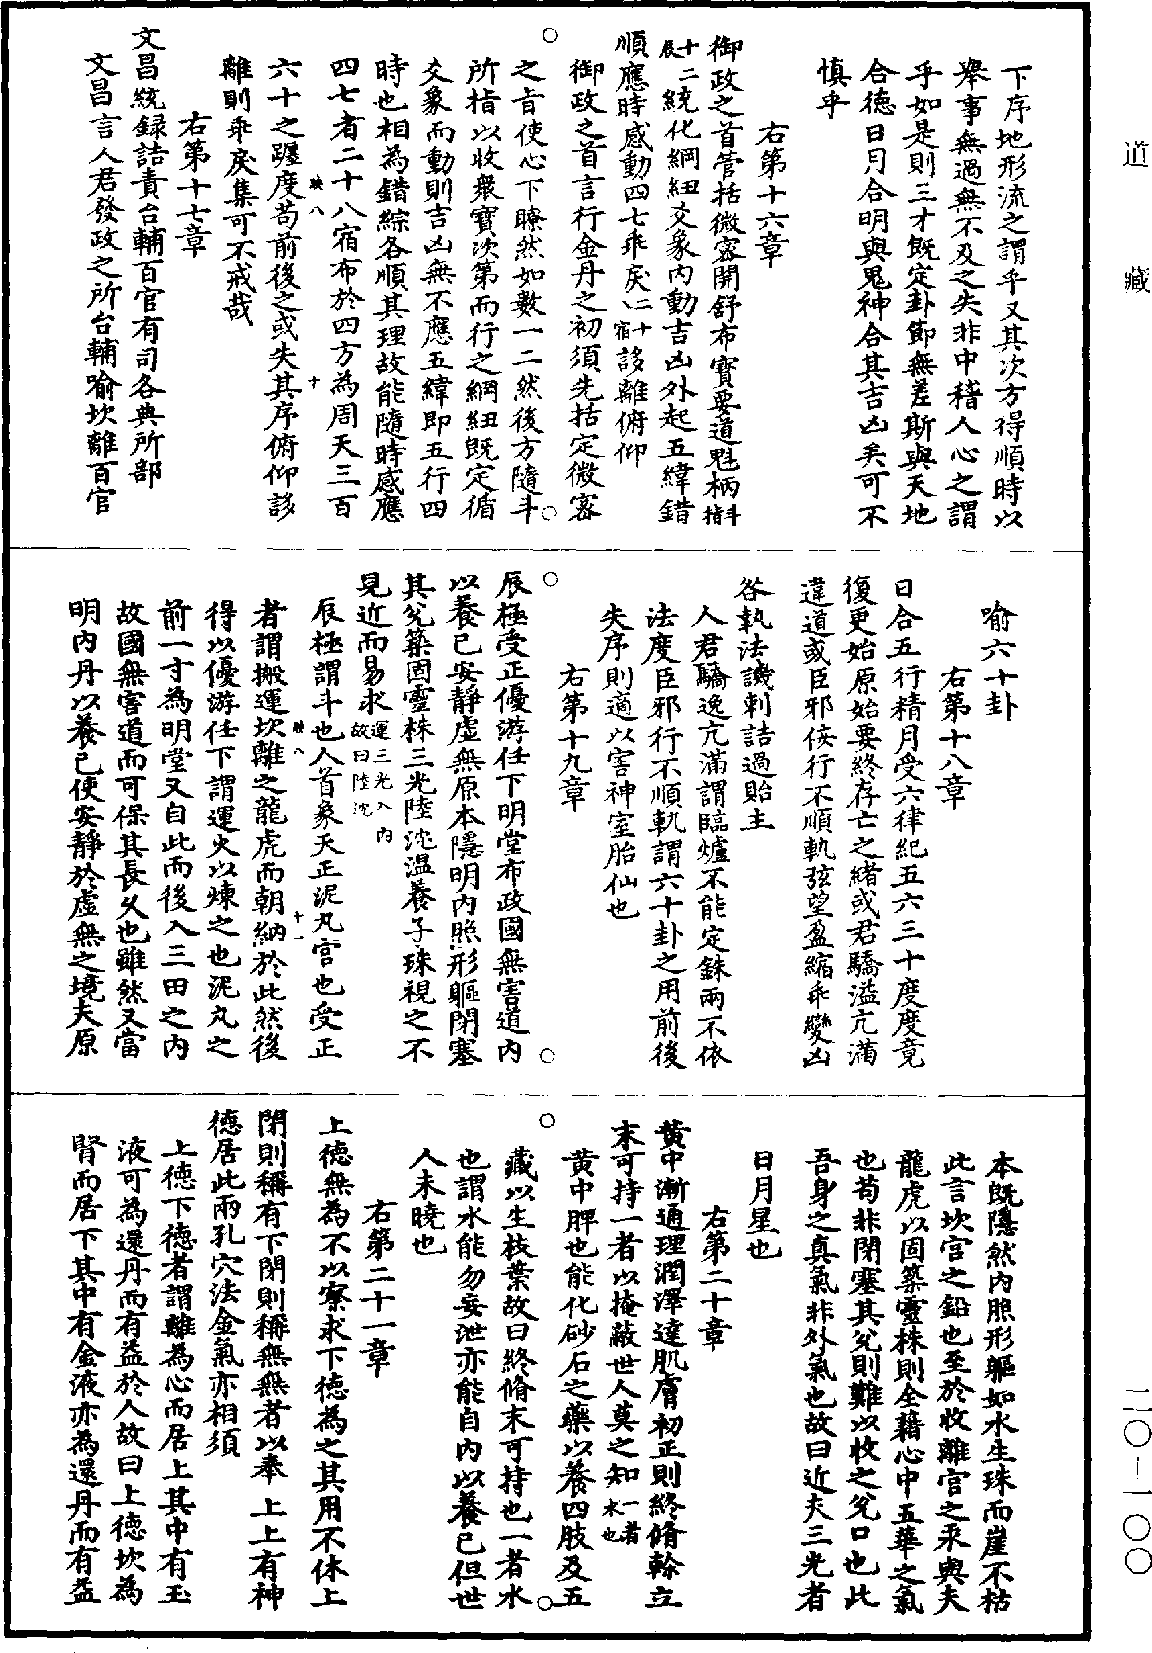 道藏
二〇—一〇〇
下序地形流之謂乎又其次方得順時以
舉事無過無不及之失非中稽人心之謂
乎如是則三才既定卦節無差斯與天地
合德日月合明與鬼神合其吉凶矣可不
慎乎
右第十六章
御政之首管括微密開舒布寶要道魁柄斗
十二辰統化綱紐爻象內動吉凶外起五緯錯
順應時感動四七乖戾二十八宿誃離俯仰
御政之首言行金丹之初須先括定微密
之旨使心下瞭然如數一二然後方隨斗
所指以收衆寶次第而行之綱紐既定循
爻象而動則吉凶無不應五緯即五行四
時也相為錯綜各順其理故能隨時感應
四七者二十八宿布於四方為周天三百
六十之躔度苟前後之或失其序俯仰誃
離則乖戾集可不戒哉
右第十七章
文昌統録詰責台輔百官有司各典所部
文昌言人君發政之所台輔喻坎離百官
映八
十
喻六十卦
右第十八章
日合五行精月受六律紀五六三十度度竟
復更始原始要終存亡之緒或君驕溢亢滿
違道或臣邪佞行不順軌弦望盈縮乖變凶
咎執法譏刺詰過貽主
人君驕逸亢滿謂臨爐不能定銖兩不依
法度臣邪行不順軌謂六十卦之用前後
失序則適以害神室胎仙也
右第十九章
辰極受正優游任下明堂布政國無害道內
以養己安靜虛無原本隱明內照形軀閉塞
其兌築固靈株三光陸沈温養子珠視之不
見近而易求運三光入內故曰陸沈
辰極謂斗也人首象天正泥丸宮也受正
者謂搬運坎離之龍虎而朝納於此然後
得以優游任下謂運火以煉之也泥丸之
前一寸為明堂又自此而後入三田之內
故國無害道而可保其長久也雖然又當
明內丹以養己使安靜於虛無之境夫原
映八
十一
本既隱然內照形軀如水生珠而崖不枯
此言坎宮之鉛也至於收離宮之汞與夫
龍虎以固築靈株則全藉心中五華之氣
也苟非閉塞其兌則難以收之兌口也此
吾身之真氣非外氣也故曰近夫三光者
日月星也
右第二十章
黃中漸通理潤澤達肌膚初正則終脩幹立
末可持一者以掩蔽世人莫之知一者水也
黃中脾也能化砂石之藥以養四肢及五
藏以生枝葉故曰終脩末可持也一者水
也謂水能勿妄泄亦能自內以養己但世
人未曉也
右第二十一章
上德無為不以察求下德為之其用不休上
閉則稱有下閉則稱無無者以奉上上有神
德居此兩孔穴法金氣亦相須
上德下德者謂離為心而居上其中有玉
液可為還丹而有益於人故曰上德坎為
腎而居下其中有金液亦為還丹而有益